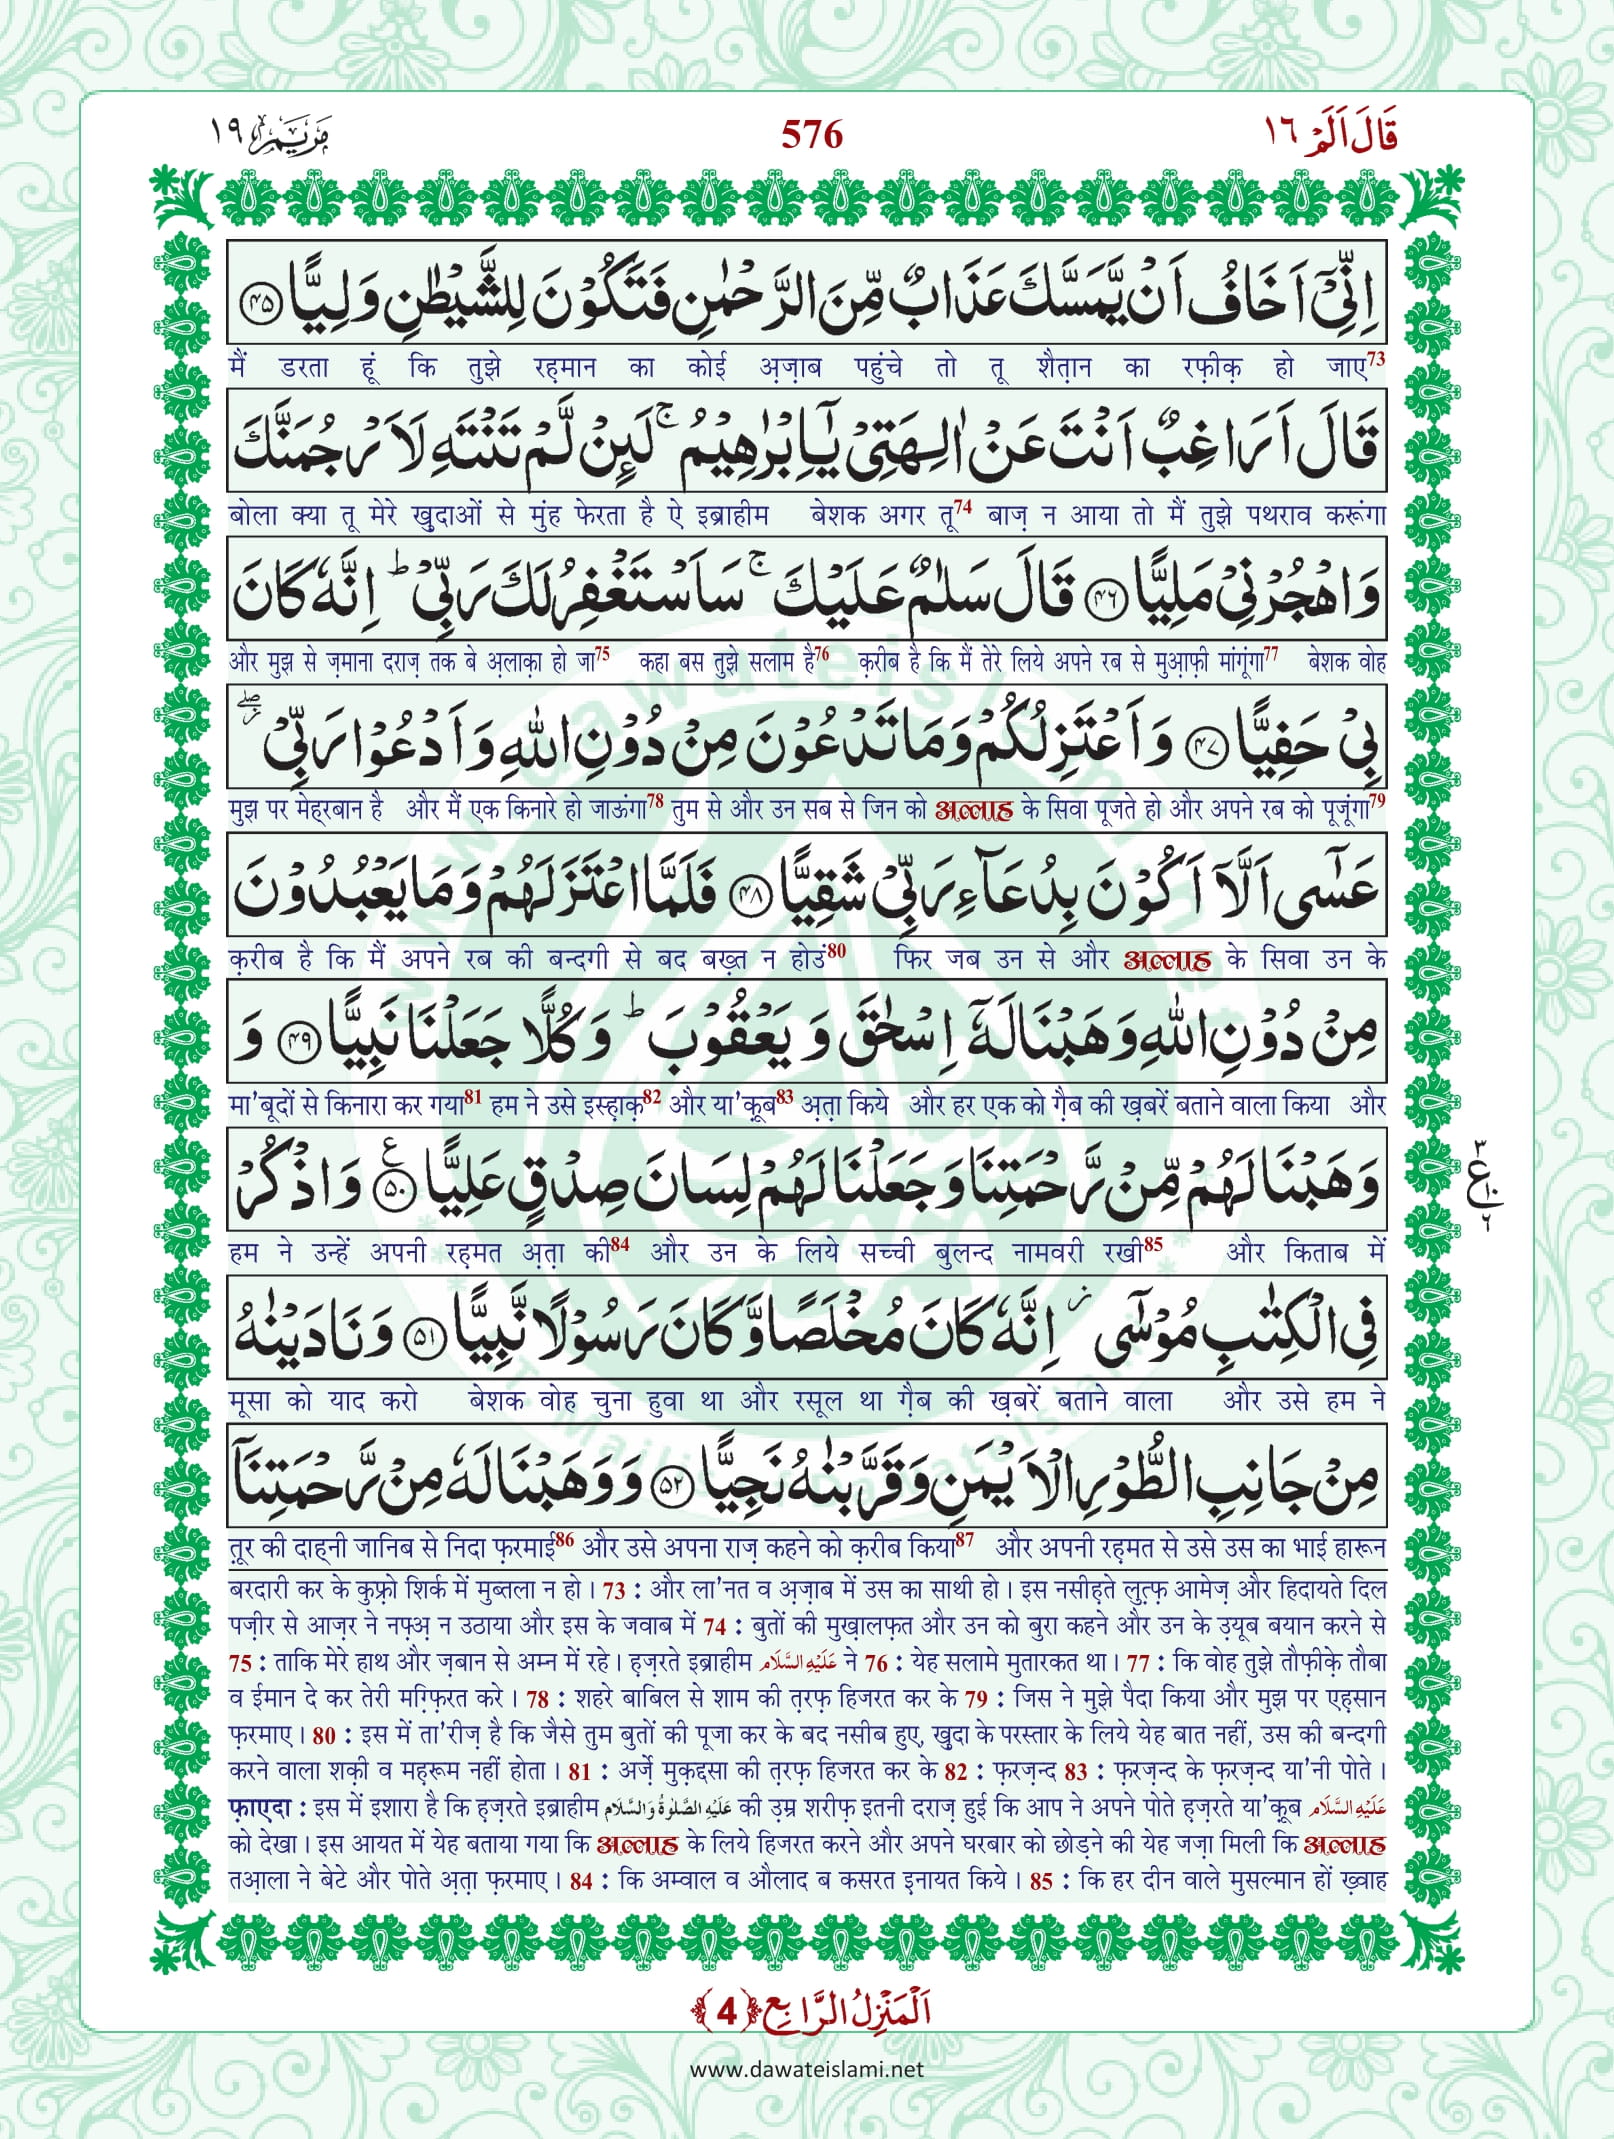 قَالَ اَلَمْ ١٦
576
مَرْيَم ١٩
اِنِّیْۤ اَخَافُ اَنْ یَّمَسَّكَ عَذَابٌ مِّنَ الرَّحْمٰنِ فَتَكُوْنَ لِلشَّیْطٰنِ وَلِیًّا ﴿۴۵﴾
मैं डरता हूं कि तुझे रह़मान का कोई अ़ज़ाब पहुंचे तो तू शैत़ान का रफ़ीक़ हो जाए73
قَالَ اَرَاغِبٌ اَنْتَ عَنْ اٰلِهَتِیْ یٰۤاِبْرٰهِیْمُ ۚ لَىِٕنْ لَّمْ تَنْتَهِ لَاَرْجُمَنَّكَ
बोला क्या तू मेरे खु़दाओं से मुंह फेरता है ऐ इब्राहीम बेशक अगर तू74 बाज़ न आया तो मैं तुझे पथराव करूंगा
وَاهْجُرْنِیْ مَلِیًّا ﴿۴۶﴾ قَالَ سَلٰمٌ عَلَیْكَ ۚ سَاَسْتَغْفِرُ لَكَ رَبِّیْ ؕ اِنَّهٗ كَانَ
और मुझ से ज़माना दराज़ तक बे अ़लाक़ा हो जा75 कहा बस तुझे सलाम है76 क़रीब है कि मैं तेरे लिये अपने रब से मुआ़फ़ी मांगूंगा77 बेशक वोह
بِیْ حَفِیًّا ﴿۴۷﴾ وَاَعْتَزِلُكُمْ وَمَا تَدْعُوْنَ مِنْ دُوْنِ اللّٰهِ وَاَدْعُوْا رَبِّیْ ۖ٘
मुझ पर मेह्रबान है और मैं एक किनारे हो जाऊंगा78 तुम से और उन सब से जिन को अल्लाह के सिवा पूजते हो और अपने रब को पूजूंगा79
عَسٰۤى اَلَّاۤ اَكُوْنَ بِدُعَآءِ رَبِّیْ شَقِیًّا ﴿۴۸﴾ فَلَمَّا اعْتَزَلَهُمْ وَمَا یَعْبُدُوْنَ
क़रीब है कि मैं अपने रब की बन्दगी से बद बख़्त न होउं80 फिर जब उन से और अल्लाह के सिवा उन के
مِنْ دُوْنِ اللّٰهِ وَهَبْنَا لَهٗۤ اِسْحٰقَ وَیَعْقُوْبَ ؕ وَكُلًّا جَعَلْنَا نَبِیًّا ﴿۴۹﴾ وَ
मा'बूदों से किनारा कर गया81 हम ने उसे इस्ह़ाक़82 और या'क़ूब83 अ़त़ा किये और हर एक को ग़ैब की ख़बरें बताने वाला किया और
وَهَبْنَا لَهُمْ مِّنْ رَّحْمَتِنَا وَجَعَلْنَا لَهُمْ لِسَانَ صِدْقٍ عَلِیًّا ﴿۵۰﴾ ع وَاذْكُرْ
٣ ع ١٠ ٦
हम ने उन्हें अपनी रह़मत अ़त़ा की84 और उन के लिये सच्ची बुलन्द नामवरी रखी85 और किताब में
فِی الْكِتٰبِ مُوْسٰۤى ز اِنَّهٗ كَانَ مُخْلَصًا وَّكَانَ رَسُوْلًا نَّبِیًّا ﴿۵۱﴾ وَنَادَیْنٰهُ
मूसा को याद करो बेशक वोह चुना हुवा था और रसूल था ग़ैब की ख़बरें बताने वाला और उसे हम ने
مِنْ جَانِبِ الطُّوْرِ الْاَیْمَنِ وَقَرَّبْنٰهُ نَجِیًّا ﴿۵۲﴾ وَوَهَبْنَا لَهٗ مِنْ رَّحْمَتِنَاۤ
त़ूर की दाह्नी जानिब से निदा फ़रमाई86 और उसे अपना राज़ कहने को क़रीब किया87 और अपनी रह़मत से उसे उस का भाई हारून
बरदारी कर के कुफ़्रो शिर्क में मुब्तला न हो। 73 : और ला'नत व अ़ज़ाब में उस का साथी हो। इस नसीह़ते लुत़्फ़ आमेज़ और हिदायते दिल
पज़ीर से आज़र ने नफ़्अ़ न उठाया और इस के जवाब में 74 : बुतों की मुख़ालफ़त और उन को बुरा कहने और उन के उ़यूब बयान करने से
75 : ताकि मेरे हाथ और ज़बान से अम्न में रहे। ह़ज़रते इब्राहीम عَلَيْهِ السَّلَام ने 76 : येह सलामे मुतारकत था। 77 : कि वोह तुझे तौफ़ीक़े तौबा
व ईमान दे कर तेरी मग़्फ़िरत करे। 78 : शहरे बाबिल से शाम की त़रफ़ हिजरत कर के 79 : जिस ने मुझे पैदा किया और मुझ पर एह़सान
फ़रमाए। 80 : इस में ता'रीज़ है कि जैसे तुम बुतों की पूजा कर के बद नसीब हुए, खु़दा के परस्तार के लिये येह बात नहीं, उस की बन्दगी
करने वाला शक़ी व मह़रूम नहीं होता। 81 : अर्ज़े मुक़द्दसा की त़रफ़ हिजरत कर के 82 : फ़रज़न्द 83 : फ़रज़न्द के फ़रज़न्द या'नी पोते।
फ़ाएदा : इस में इशारा है कि ह़ज़रते इब्राहीम عَلَيْهِ الصَّلٰوةُ وَالسَّلَام की उ़म्र शरीफ़ इतनी दराज़ हुई कि आप ने अपने पोते ह़ज़रते या'क़ूब عَلَيْهِ السَّلَام
को देखा। इस आयत में येह बताया गया कि अल्लाह के लिये हिजरत करने और अपने घरबार को छोड़ने की येह जज़ा मिली कि अल्लाह
तआ़ला ने बेटे और पोते अ़त़ा फ़रमाए। 84 : कि अम्वाल व औलाद ब कसरत इ़नायत किये। 85 : कि हर दीन वाले मुसल्मान हों ख़्वाह
اَلْمَنْزِلُ الرَّابِع ﴿4﴾
www.dawateislami.net